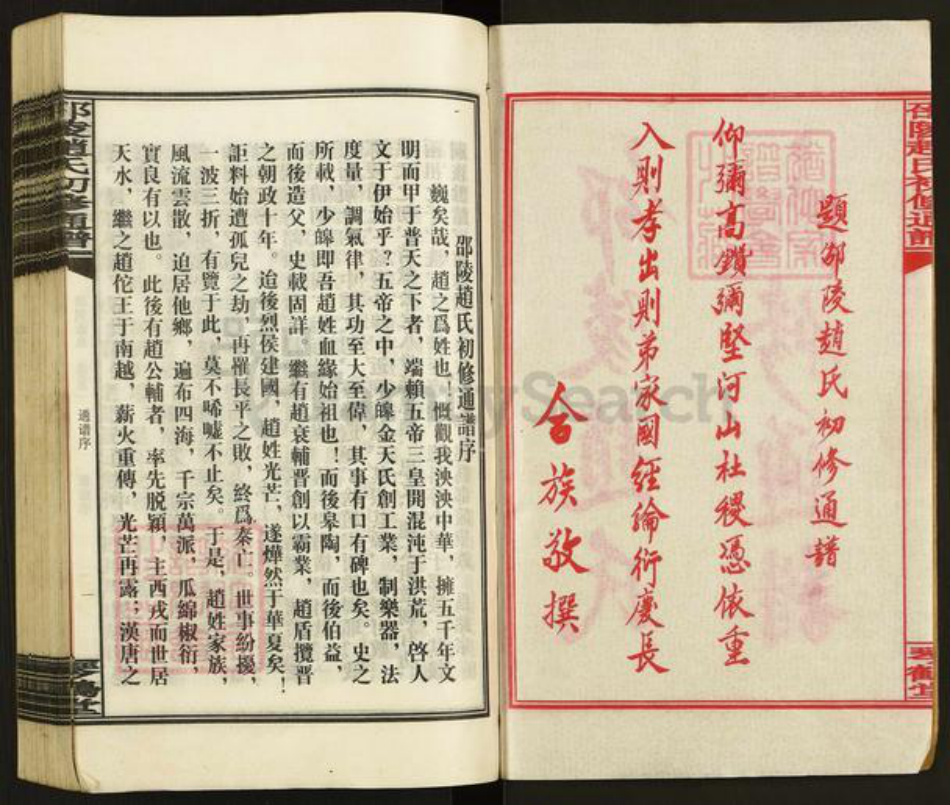 邵陵趙氏初修通譜
題邵陵趙氏初修通譜
仰彌高鑽彌堅河山社稷憑依重
入則孝出則弟家國經綸衍慶長
合族敬撰
琴鶴堂
邵陵趙氏初修通譜序
巍矣哉，趙之爲姓也！慨觀我泱泱中華，擁五千年文
明而甲于普天之下者，端賴五帝三皇開混沌于洪荒，啓人
文于伊始乎？五帝之中，少皞金天氏創工業，制樂器，法
度量，調氣律，其功至大至偉，其事有口有碑也矣。史之
所載，少皞即吾趙姓血緣始祖也！而後皋陶，而後伯益，
而後造父，史載固詳。繼有趙衰輔晋創以霸業，趙盾攬晋
之朝政十年。迨後烈侯建國，趙姓光芒，遂燁然于華夏矣！
詎料始遭孤兒之劫，再罹長平之敗，終爲秦亡。世事紛擾，
一波三折，有覽于此，莫不唏嘘不止矣。于是，趙姓家族，
風流雲散，迫居他鄉，遍布四海，千宗萬派，瓜綿椒衍，
實良有以也。此後有趙公輔者，率先脱穎，主西戎而世居
天水，繼之趙佗王于南越，薪火重傳，光芒再露；漢唐之
邵陵趙氏初修通譜
通譜序
一
琴鶴堂
FamilySearch